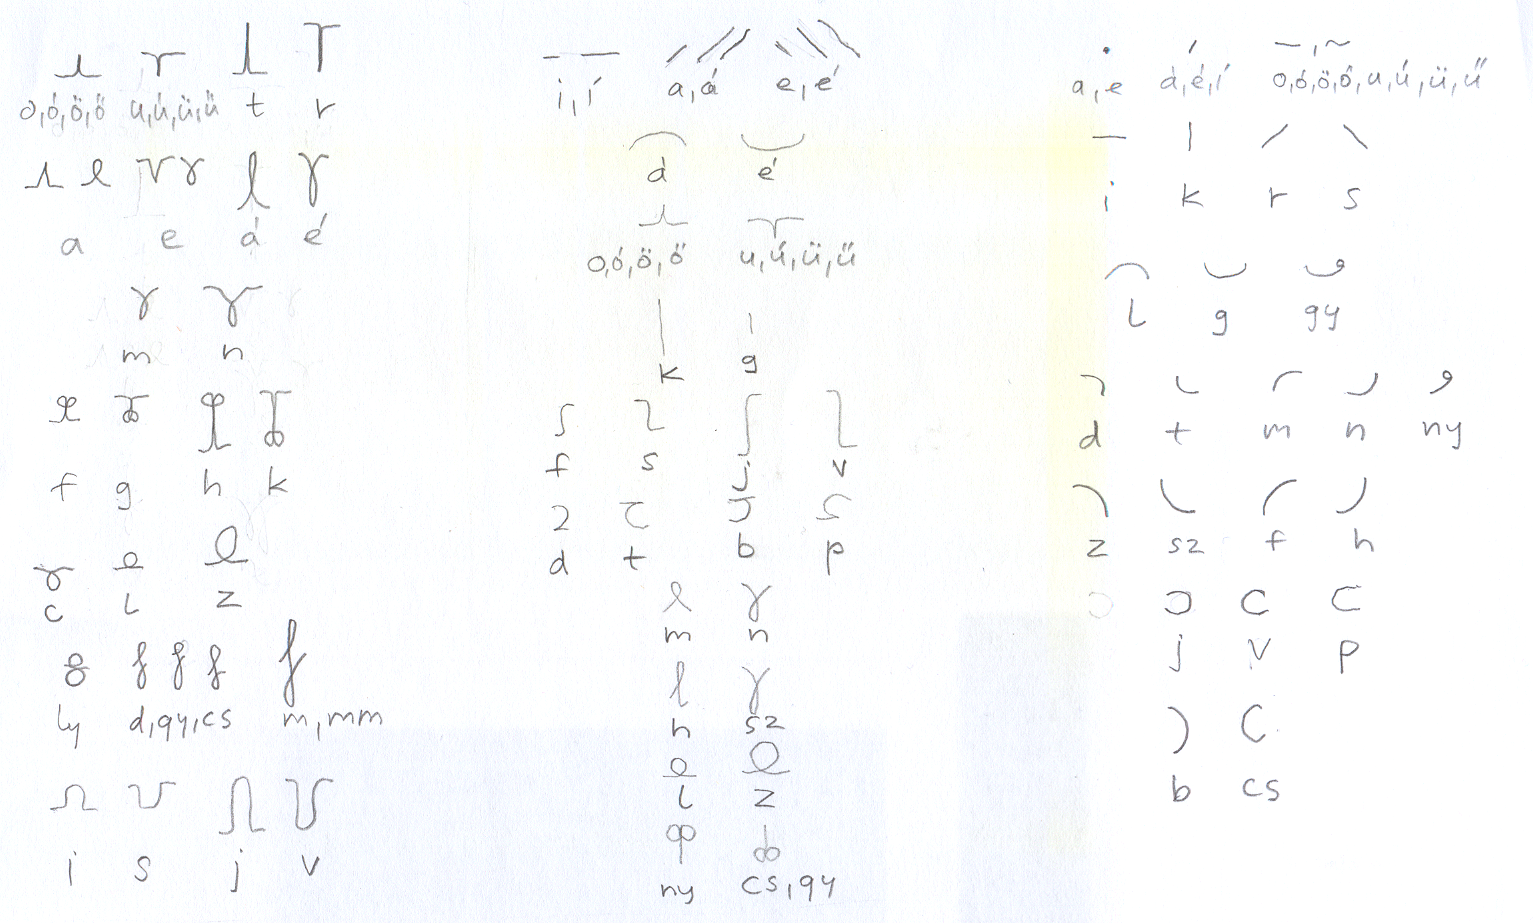 o,ó,ö,ő u,ú,ü,ű t r
a e á é
m n
f g h k
c l z
ly d,gy,cs m,mm
i s j v
i,í a,á e,é
á é
o,ó,ö,ő u,ú,ü,ű
k g
f s j v
d t b p
m n
h sz
l z
ny cs,gy
a,e á,é,í o,ó,ö,ő,u,ú,ü,ű
i k r s
l g gy
d t m n ny
z sz f h
j v p
b cs